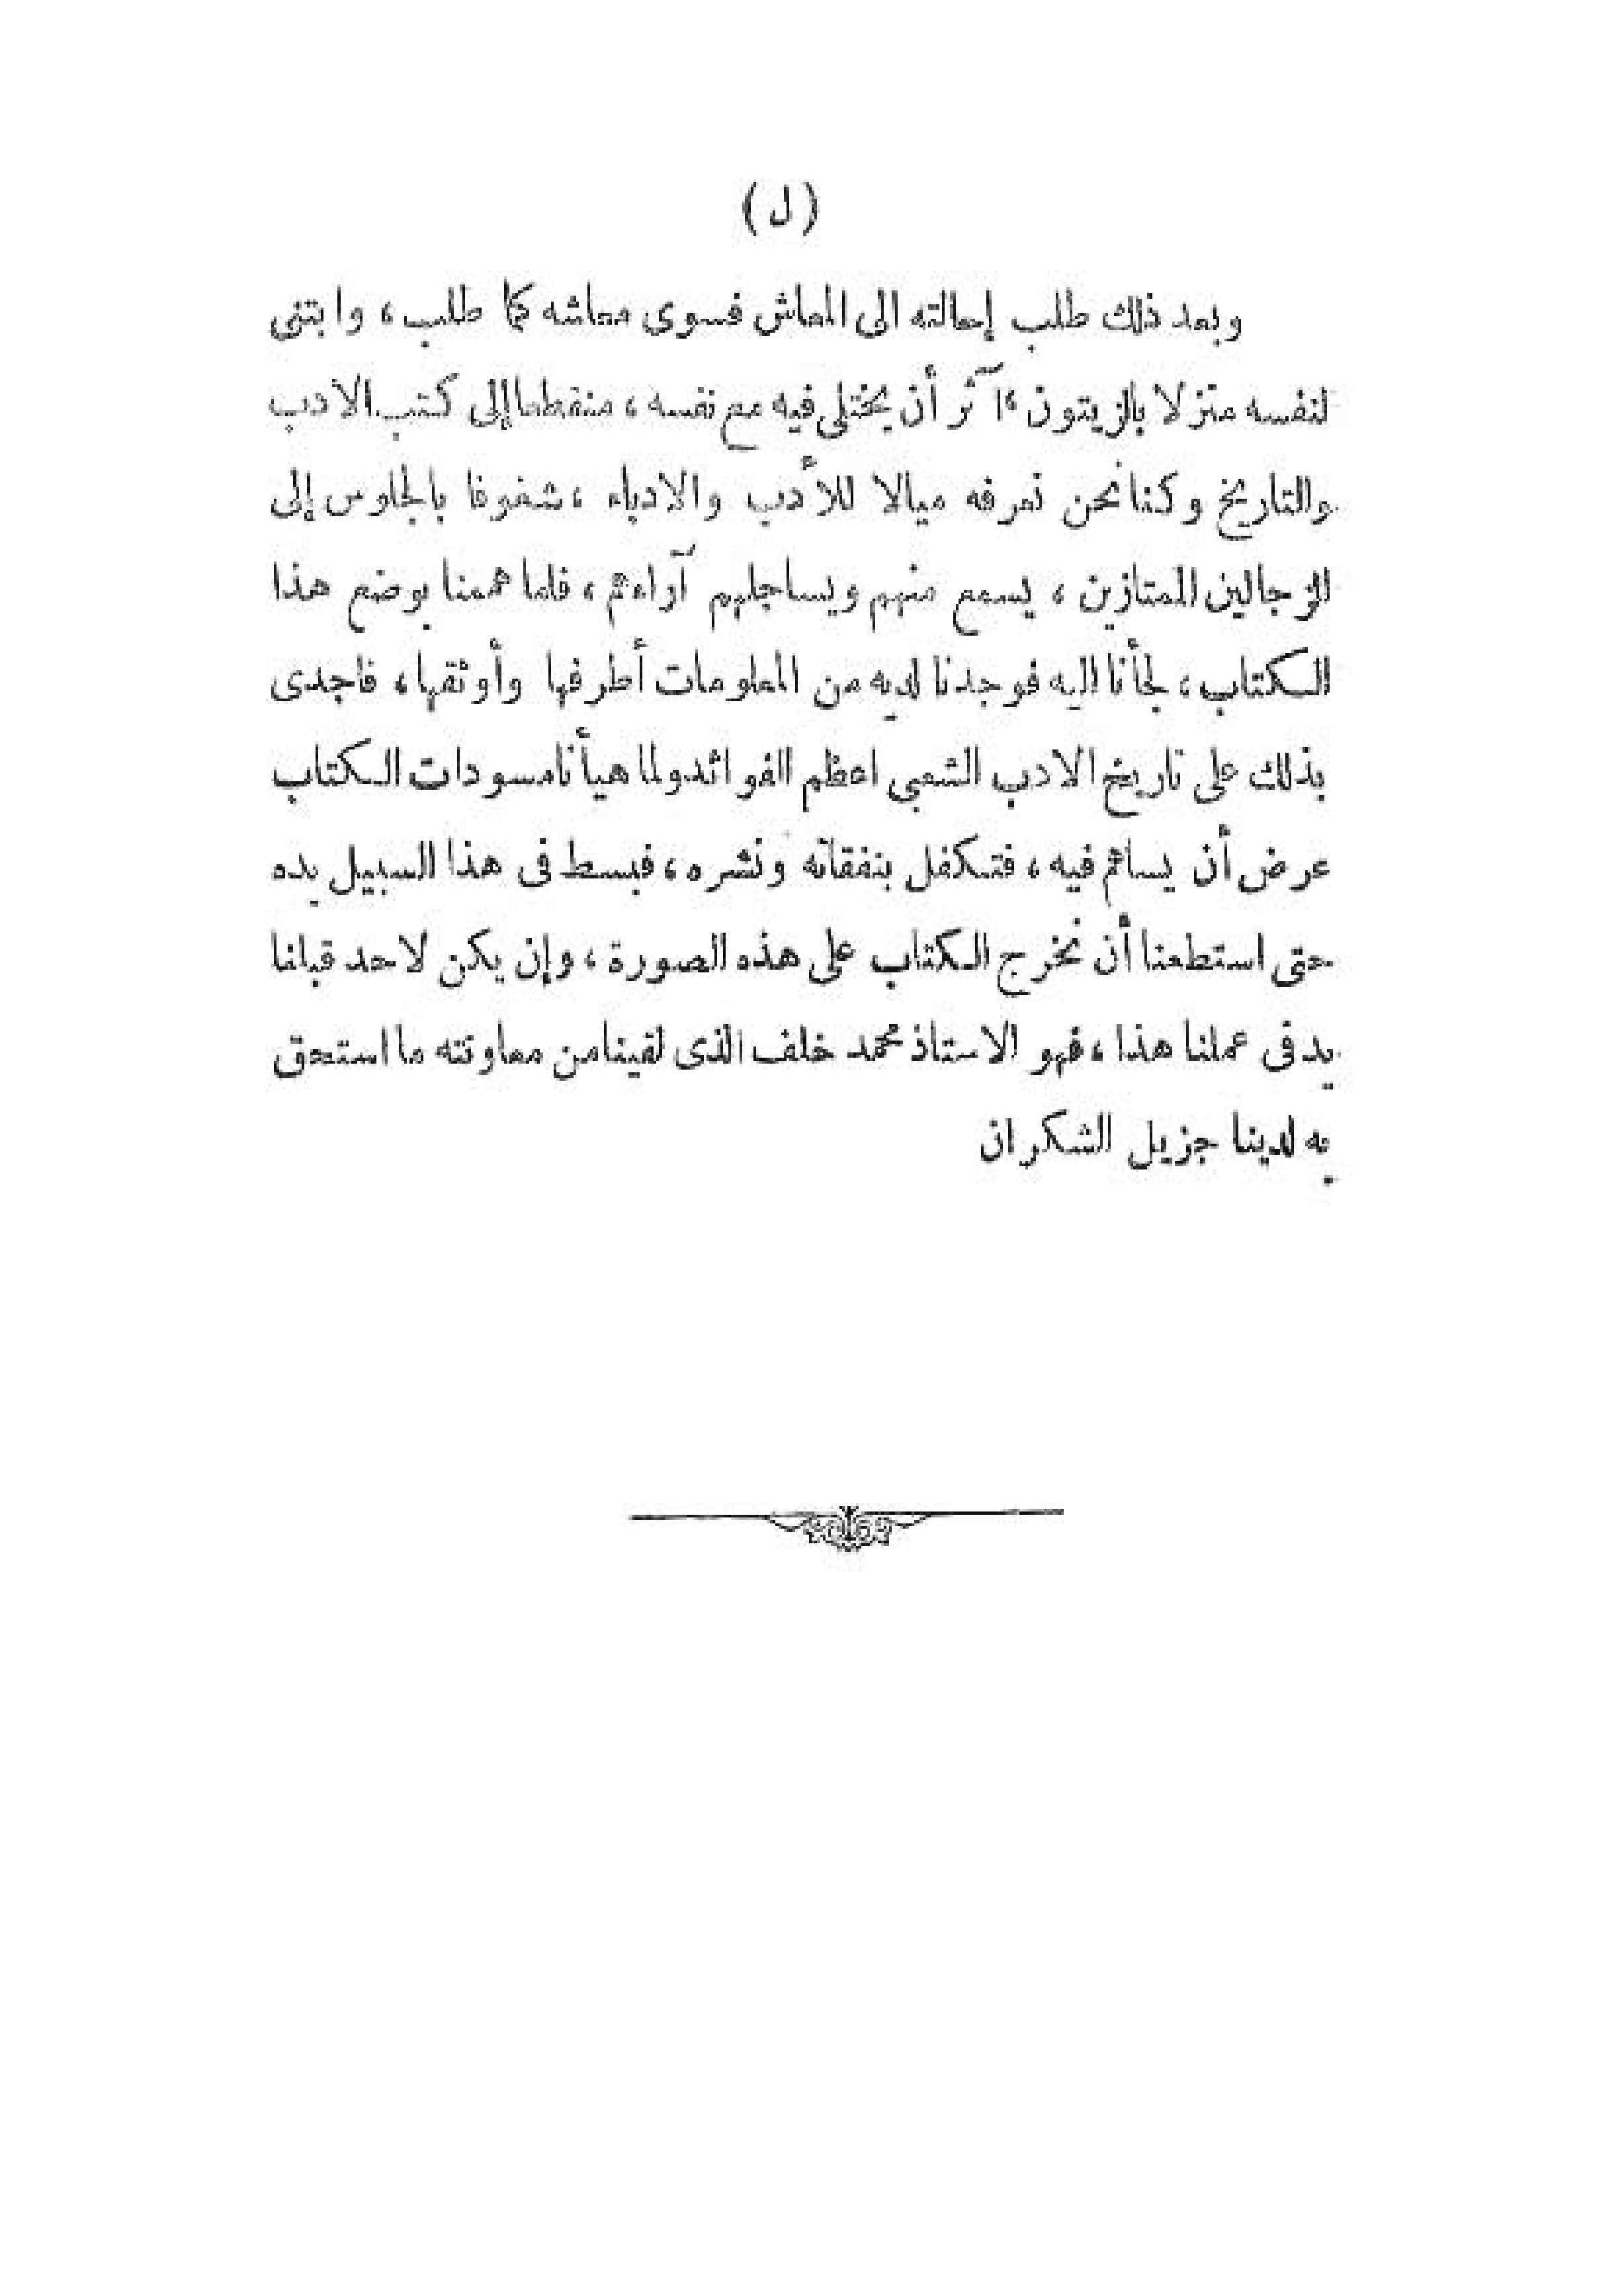 (ل)
وبعد ذلك طلب إحالته الى المعاش فسوى معاشه كما طلب، وابتنى
لنفسه منزلا بالزيتون، آثر أن يختلى فيه مع نفسه، منقطعا إلى كتب الادب
والتاريخ وكنا نحن نعرفه ميالا للأدب والادباء، شغوفا بالجلوس إلى
الزجالين الممتازين، يسمع منهم ويساجلهم آراءهم، فلما هممنا بوضع هذا
الكتاب، لجأنا اليه فوجدنا لديه من المعلومات أطرفها وأوثقها، فاجدى
بذلك على تاريخ الادب الشعبي اعظم الفوائد ولما هيأنا مسودات الكتاب
عرض أن يساهم فيه، فتكفل بنفقاته ونشره، فبسط فى هذا السبيل يده
حتى استطعنا أن نخرج الكتاب على هذه الصورة، وإن يكن لاحد قبلنا
يد فى عملنا هذا، فهو الاستاذ محمد خلف الذى لقينا من معاونته ما استحق
به لدينا جزيل الشكران